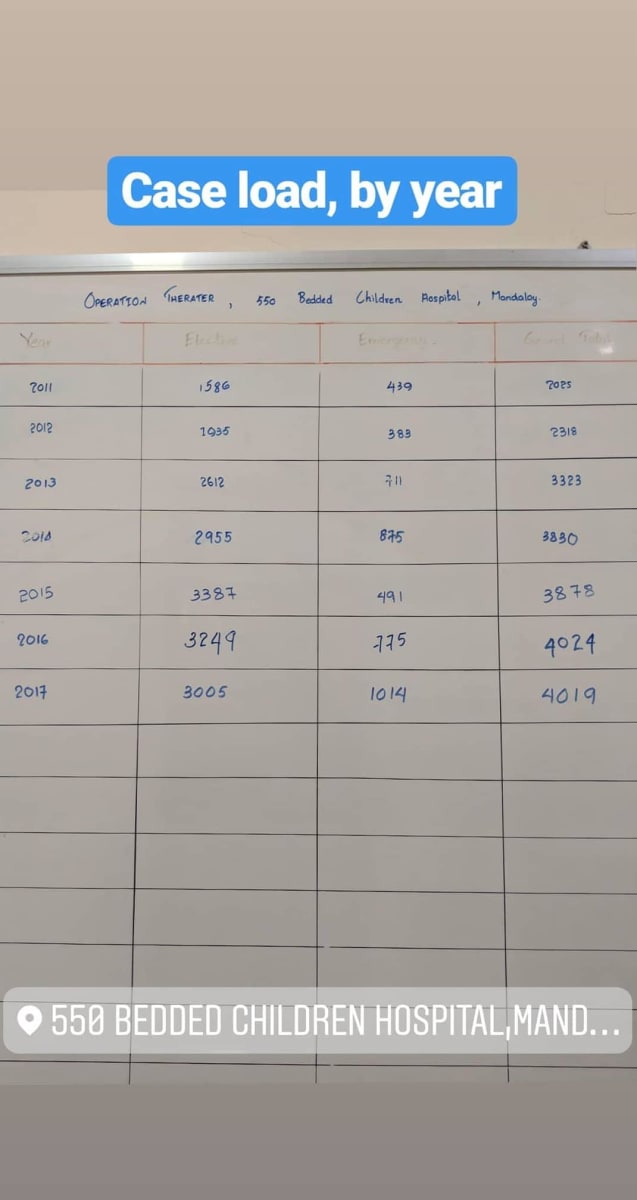 Case load, by year
OPERATION THERATER , 550 Bedded Children Hospital , Mandalay.
Year Elective Emergency. Grand Total
2011 1586 439 2025
2012 1935 383 2318
2013 2612 711 3323
2014 2955 875 3830
2015 3387 491 3878
2016 3249 775 4024
2017 3005 1014 4019
550 BEDDED CHILDREN HOSPITAL,MAND...